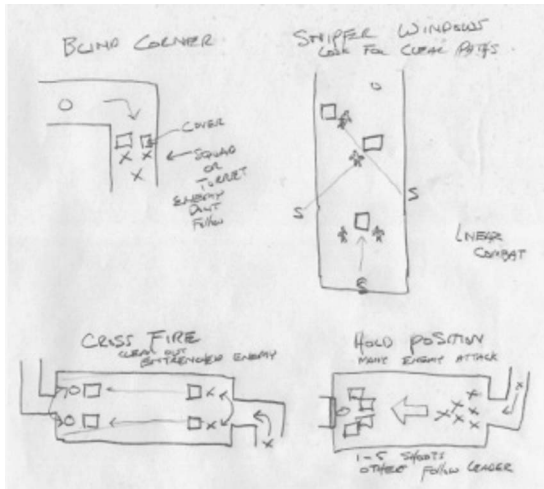 BLIND CORNER
O
COVER
SQUAD
OR
TURRET
ENEMY
DONT
FOLLOW
X X
X
SNIPER WINDOWS
LOOK FOR CLEAR PATHS
O
S
S
S
LINEAR
COMBAT
CROSS FIRE
CLEAR OUT
ENTRENCHED ENEMY
O
X
O
X
X
HOLD POSITION
MANY ENEMY ATTACK
O
X X X X X X
X
1-5 SHOOTS
OTHER FOLLOW LEADER